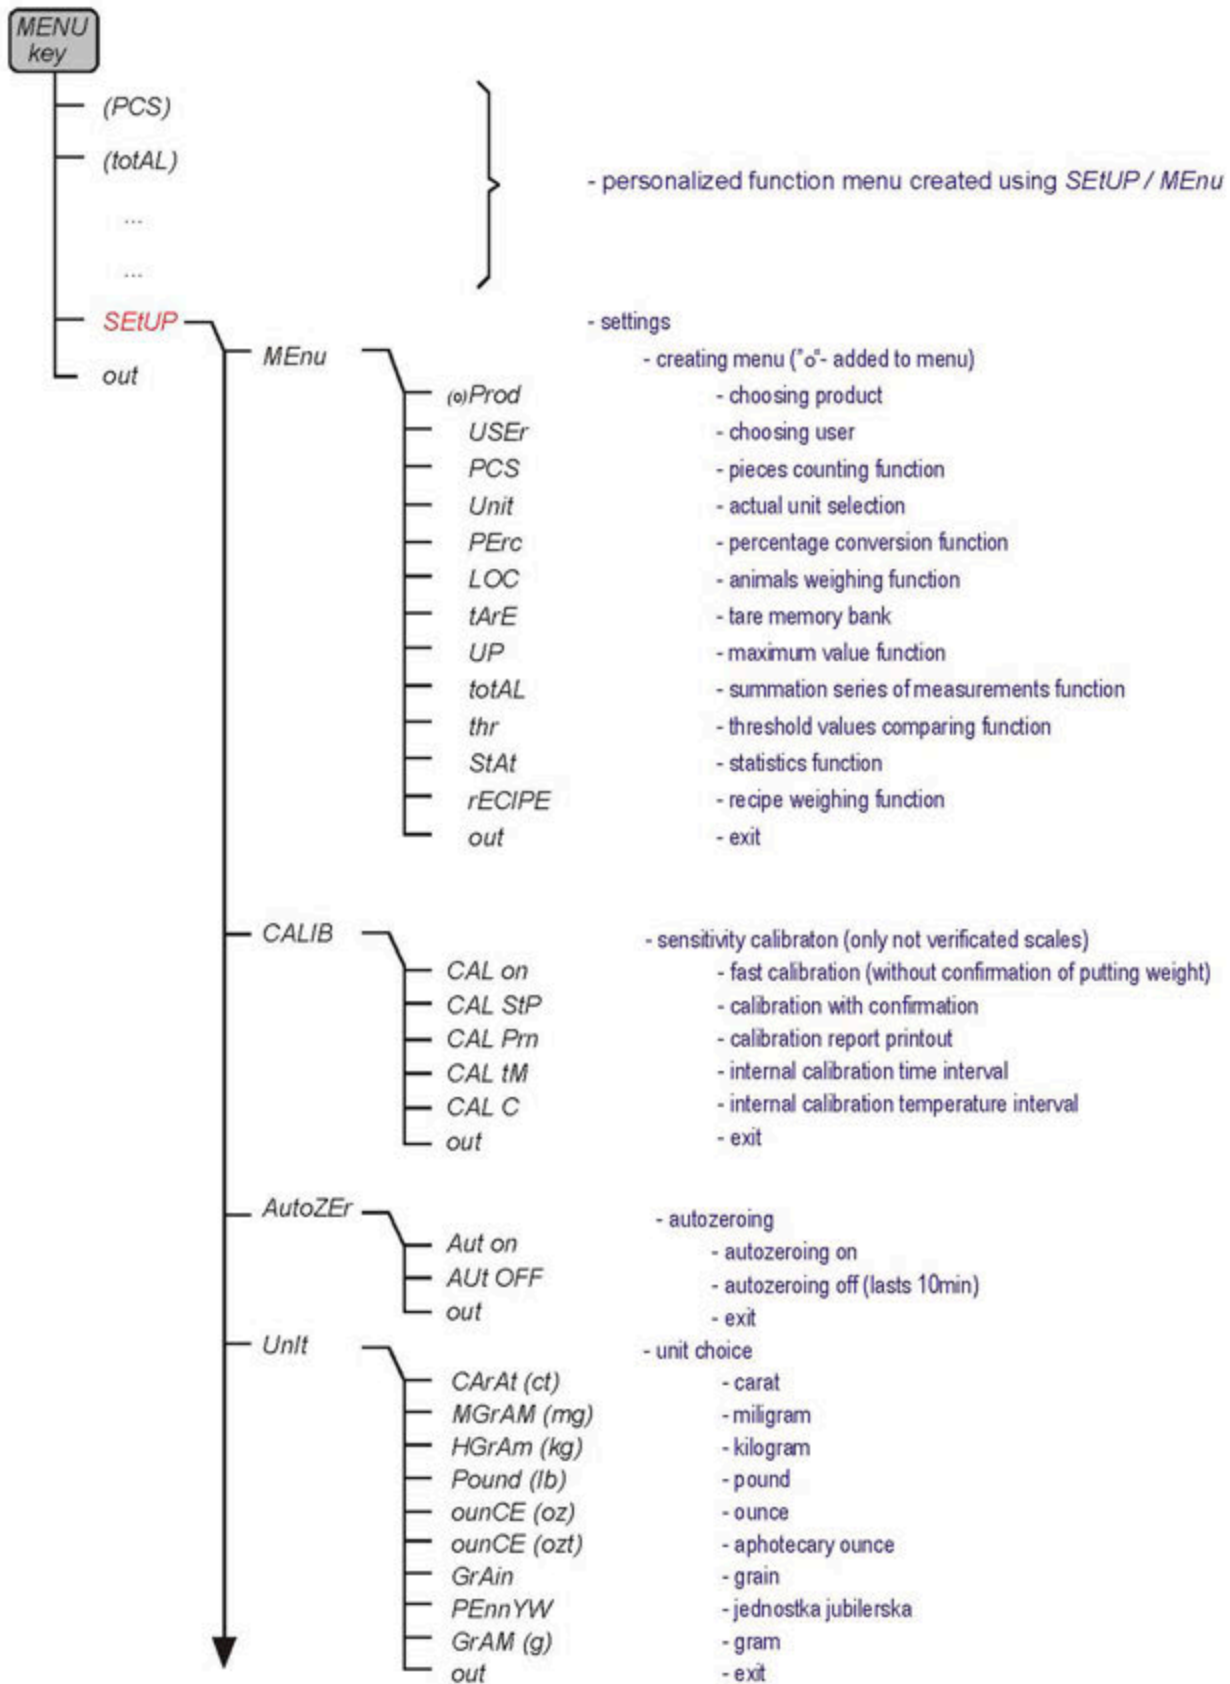 MENU
key
(PCS)
(totAL)
- personalized function menu created using SEtUP / MEnu
...
...
SEtUP - settings
MEnu - creating menu ("o"- added to menu)
out
(o)Prod - choosing product
USEr - choosing user
PCS - pieces counting function
Unit - actual unit selection
PErc - percentage conversion function
LOC - animals weighing function
tArE - tare memory bank
UP - maximum value function
totAL - summation series of measurements function
thr - threshold values comparing function
StAt - statistics function
rECIPE - recipe weighing function
out - exit
CALIB - sensitivity calibraton (only not verificated scales)
CAL on - fast calibration (without confirmation of putting weight)
CAL StP - calibration with confirmation
CAL Prn - calibration report printout
CAL tM - internal calibration time interval
CAL C - internal calibration temperature interval
out - exit
AutoZEr - autozeroing
Aut on - autozeroing on
AUt OFF - autozeroing off (lasts 10min)
out - exit
UnIt - unit choice
CArAt (ct) - carat
MGrAM (mg) - miligram
HGrAm (kg) - kilogram
Pound (lb) - pound
ounCE (oz) - ounce
ounCE (ozt) - aphotecary ounce
GrAin - grain
PEnnYW - jednostka jubilerska
GrAM (g) - gram
out - exit